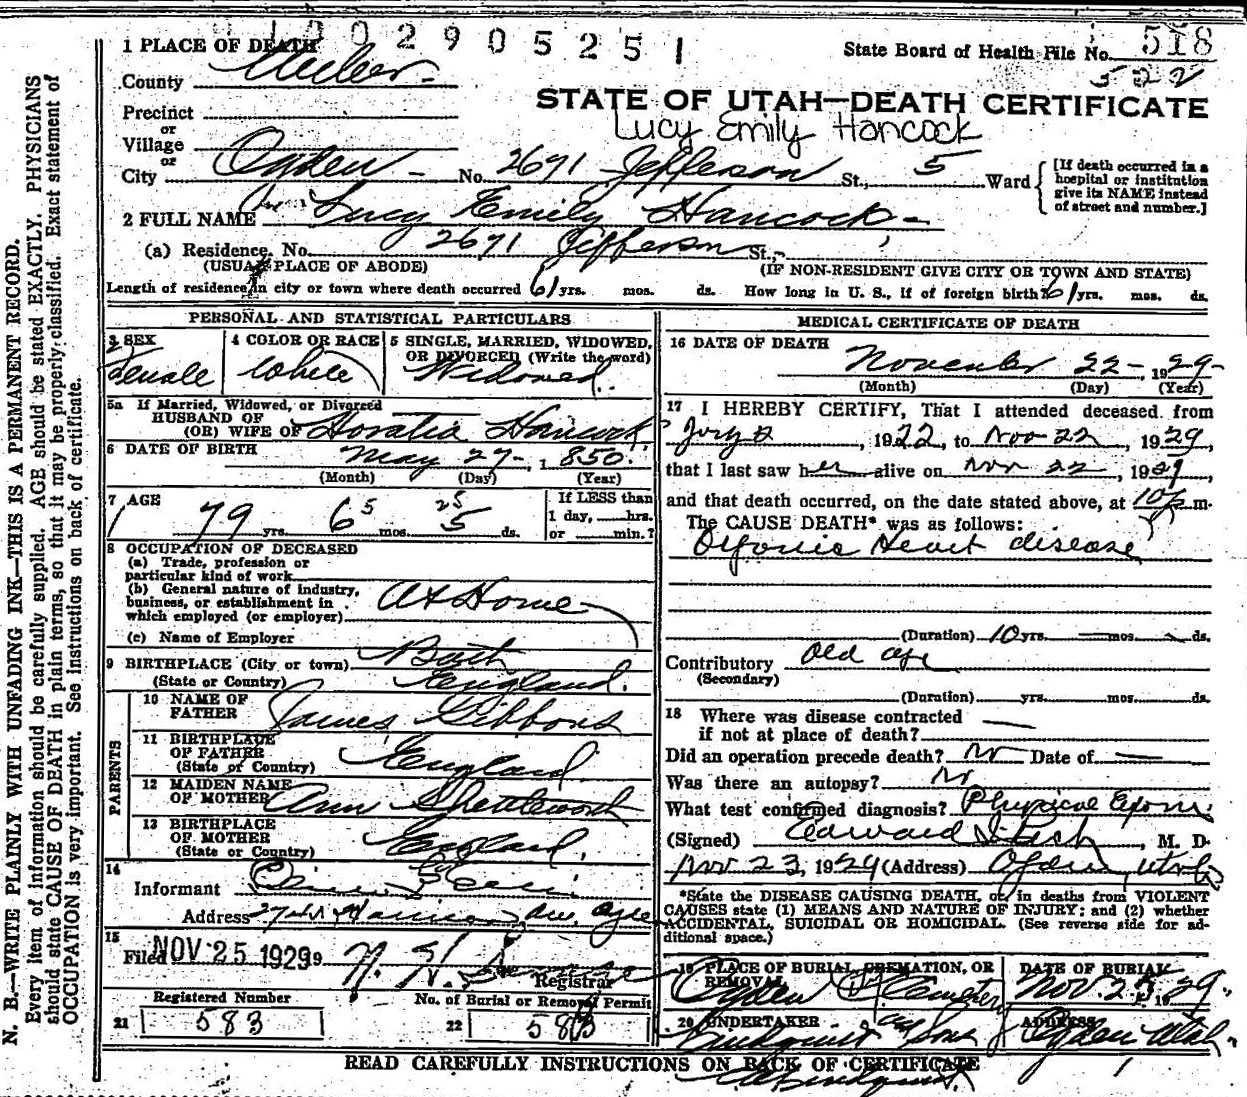 1002905251
1 PLACE OF DEATH
State Board of Health File No. 518
County Weber
522
STATE OF UTAH—DEATH CERTIFICATE
Precinct
Lucy Emily Hancock
or
Village
or
City Ogden No. 2671 Jefferson St., 5 Ward
[If death occurred in a hospital or institution give its NAME instead of street and number.]
2 FULL NAME Lucy Emily Hancock
(a) Residence, No. 2671 Jefferson St.,
(USUAL PLACE OF ABODE) (IF NON-RESIDENT GIVE CITY OR TOWN AND STATE)
Length of residence in city or town where death occurred 61 yrs. mos. ds. How long in U. S., if of foreign birth? 61 yrs. mos. ds.
PERSONAL AND STATISTICAL PARTICULARS
3 SEX
Female
4 COLOR OR RACE
White
5 SINGLE, MARRIED, WIDOWED,
OR DIVORCED (Write the word)
Widowed.
5a If Married, Widowed, or Divorced
HUSBAND OF
(OR) WIFE OF Horatia Hancock
6 DATE OF BIRTH May 27 - 1850.
(Month) (Day) (Year)
7 AGE
79 yrs. 6 5 mos. 25 5 ds.
If LESS than
1 day, hrs.
or min.?
8 OCCUPATION OF DECEASED
(a) Trade, profession or
particular kind of work
(b) General nature of industry,
business, or establishment in
which employed (or employer) At Home
(c) Name of Employer
9 BIRTHPLACE (City or town) Bath
(State or Country) England.
PARENTS
10 NAME OF
FATHER James Gibbons
11 BIRTHPLACE
OF FATHER
(State or Country) England.
12 MAIDEN NAME
OF MOTHER Ann Shettleworth
13 BIRTHPLACE
OF MOTHER
(State or Country) England.
14
Informant
Address
15
Filed NOV 25 1929 9
Registrar
Registered Number No. of Burial or Removal Permit
21 583 22 583
MEDICAL CERTIFICATE OF DEATH
16 DATE OF DEATH
November 22 - 1929-
(Month) (Day) (Year)
17 I HEREBY CERTIFY, That I attended deceased from
1922, to Nov 22, 1929
that I last saw her alive on Nov 22, 1929,
and that death occurred, on the date stated above, at 10 p.m.
The CAUSE DEATH* was as follows:
Organic Heart disease
(Duration) 10 yrs. — mos. - ds.
Contributory Old age
(Secondary)
(Duration) yrs. mos. ds.
18 Where was disease contracted —
if not at place of death?
Did an operation precede death? No Date of —
Was there an autopsy? No
What test confirmed diagnosis? Physical Exam.
(Signed) Edward , M. D.
Nov 23, 1929 (Address) Ogden, Utah
*State the DISEASE CAUSING DEATH, or, in deaths from VIOLENT
CAUSES state (1) MEANS AND NATURE OF INJURY; and (2) whether
ACCIDENTAL, SUICIDAL OR HOMICIDAL. (See reverse side for ad-
ditional space.)
19 PLACE OF BURIAL, CREMATION, OR
REMOVAL
Ogden Cemetery
DATE OF BURIAL
Nov. 25 1929.
20 UNDERTAKER
Lindquist and Sons
ADDRESS
Ogden Utah.
READ CAREFULLY INSTRUCTIONS ON BACK OF CERTIFICATE
N. B.—WRITE PLAINLY WITH UNFADING INK—THIS IS A PERMANENT RECORD.
Every item of information should be carefully supplied. AGE should be stated EXACTLY. PHYSICIANS
should state CAUSE OF DEATH in plain terms, so that it may be properly classified. Exact statement of
OCCUPATION is very important. See instructions on back of certificate.